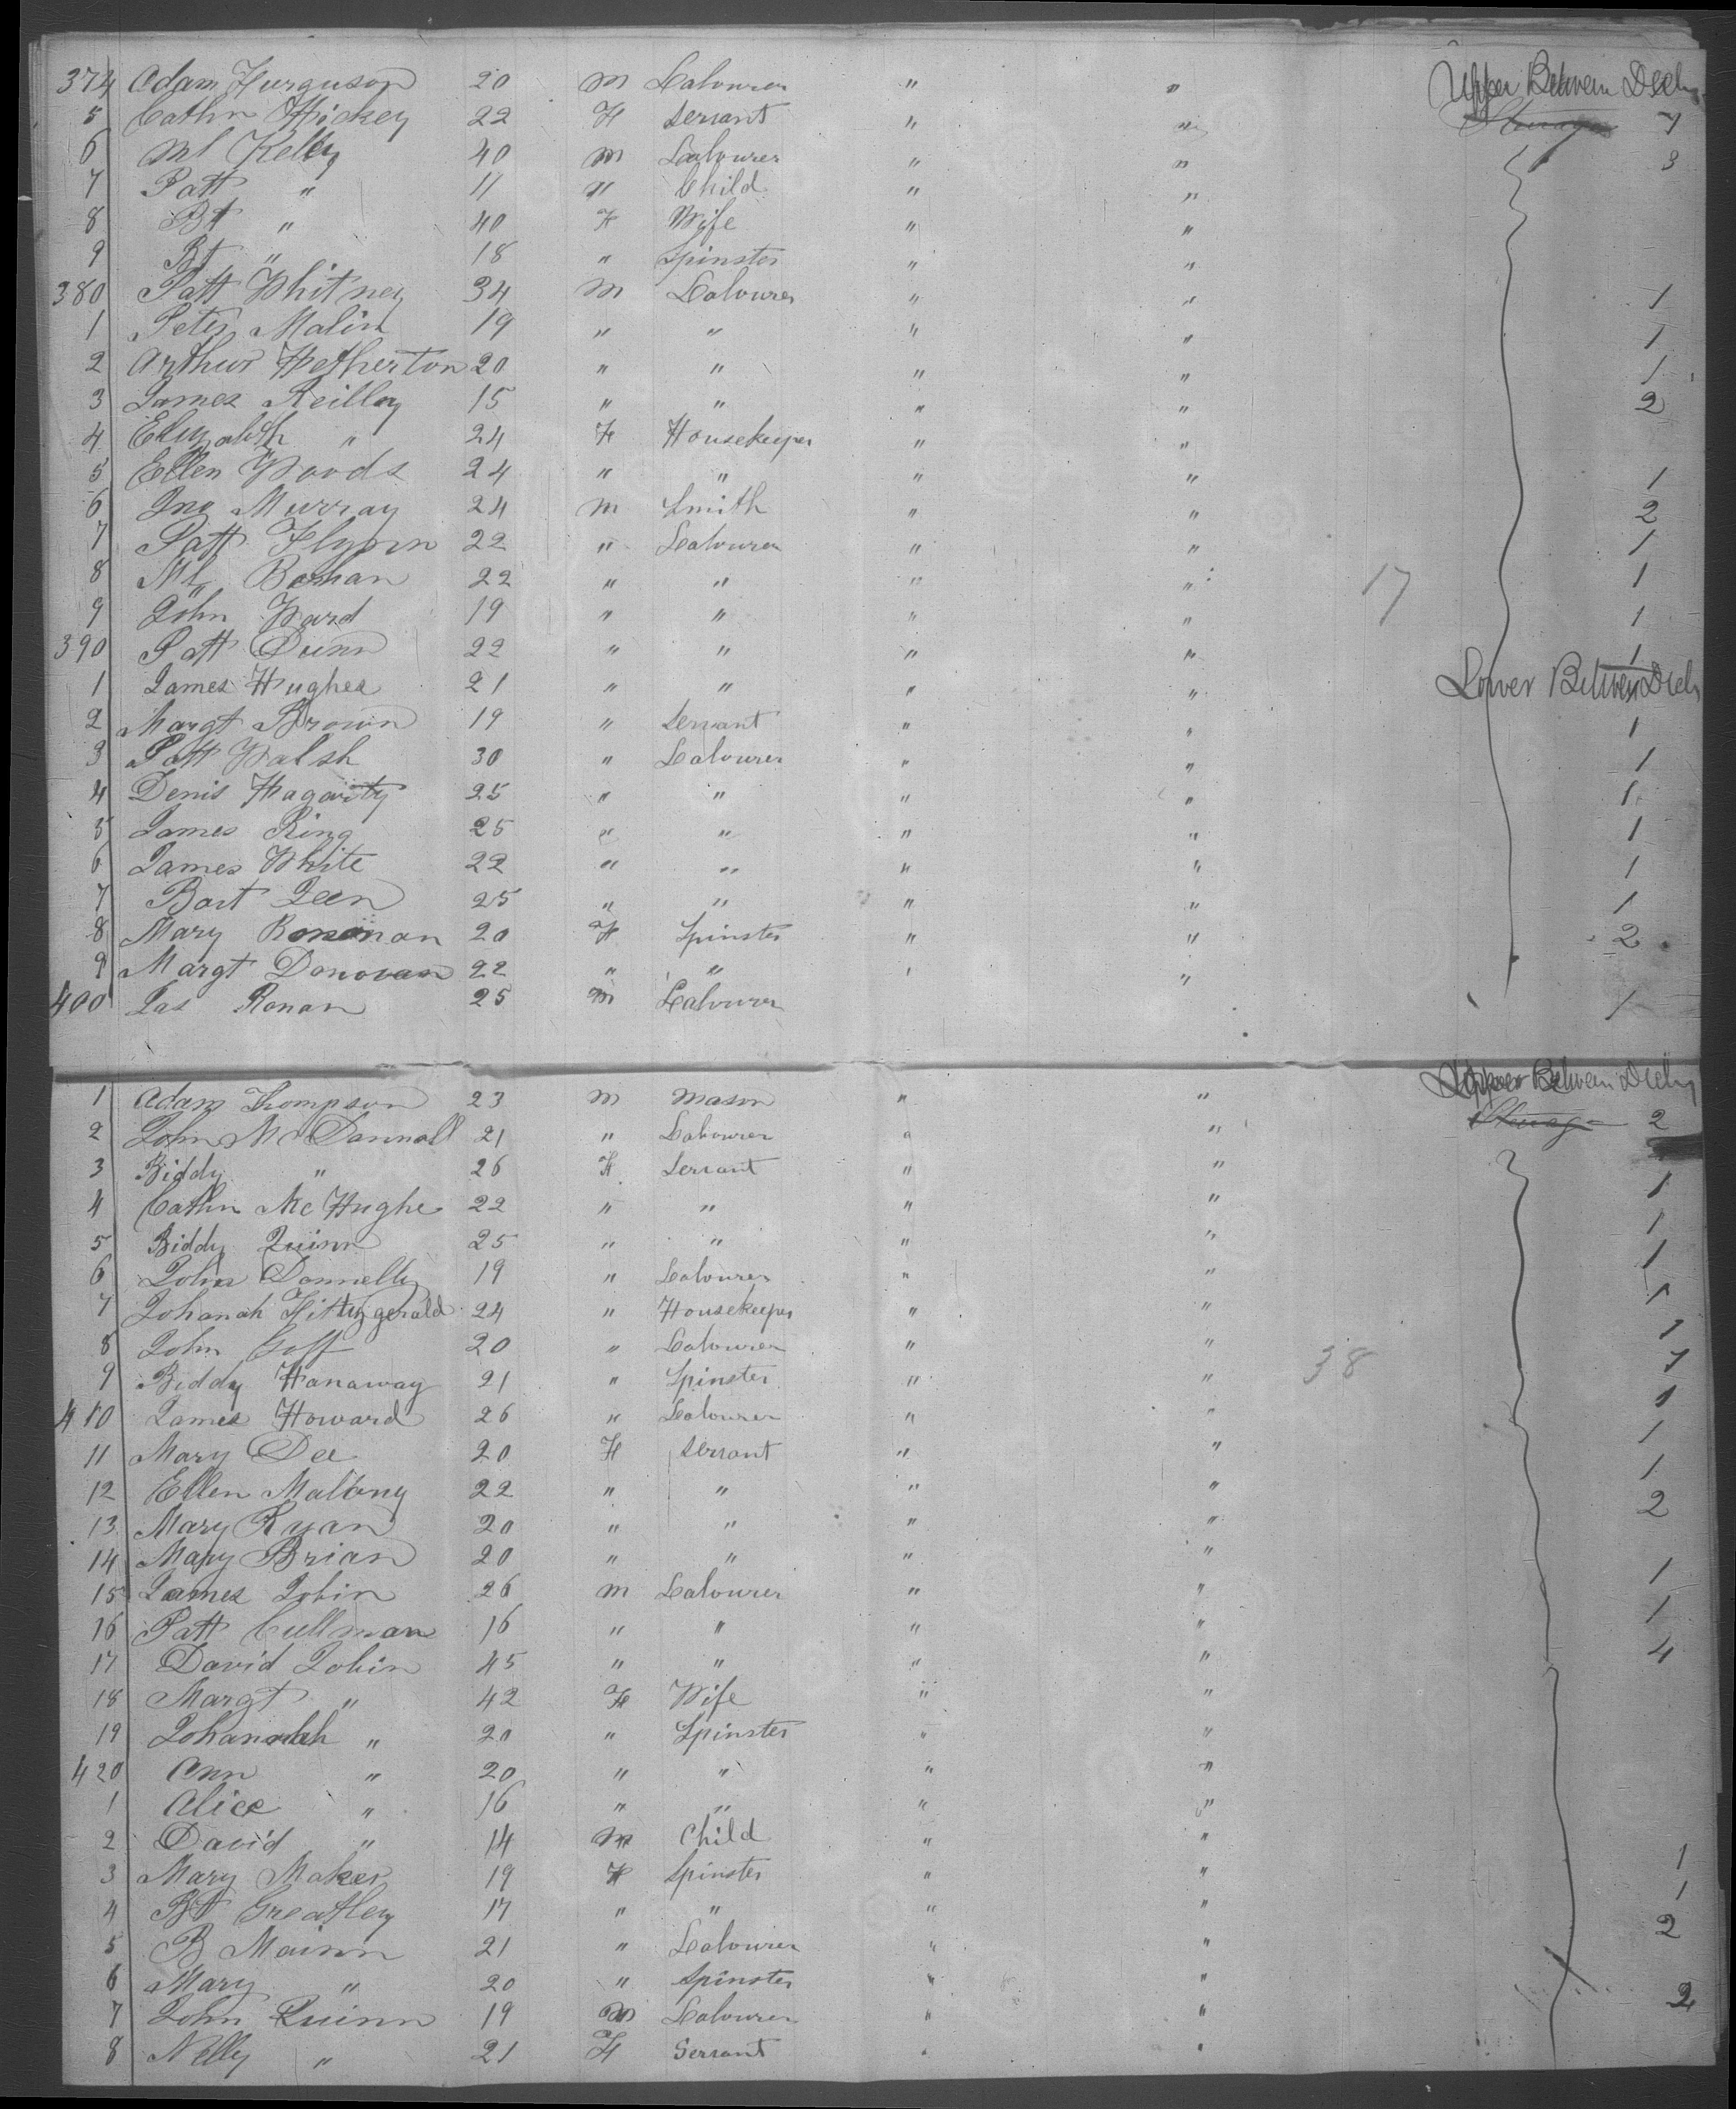 374 Adam Furguson 20 M Labourer " " Upper Between Decks
5 Cathn Hickey 22 F Servant " " Steerage 1
6 Ml Kelly 40 M Labourer " " 3
7 Patt " 11 " Child " "
8 Bt " 40 F Wife " "
9 Bt " 18 " Spinster " "
380 Patt Whitney 34 M Labourer " " 1
1 Peter Malin 19 " " " " 1
2 Arthur Hetherton 20 " " " " 1
3 James Reilly 15 " " " " 2
4 Elizabth " 24 F Housekeeper " "
5 Ellen Woods 24 " " " " 1
6 Jno Murray 24 M Smith " " 2
7 Patt Flynn 22 " Labourer " " 1
8 Ml Bohan 22 " " " " 17 1
9 John Ward 19 " " " " 1
390 Patt Dunn 22 " " " " 1
1 James Hughes 21 " " " " Lower Between Decks
2 Margt Brown 19 " Servant " " 1
3 Patt Walsh 30 " Labourer " " 1
4 Denis Hagarity 25 " " " " 1
5 James Ring 25 " " " " 1
6 James White 22 " " " " 1
7 Bart Leen 25 " " " " 1
8 Mary 20 F Spinster " " 2
9 Margt Donovan 22 " " " "
400 Jas Ronan 25 M Labourer 1
1 Adam Thompson 23 M Mason " " Upper Between Decks
2 John McDannall 21 " Labourer " " Steerage 2
3 Biddy " 26 F Servant " "
4 Cathn McHughe 22 " " " " 1
5 Biddy Quinn 25 " " " " 1
6 John Donnelly 19 " Labourer " " 1
7 Johanah Fittzgerald 24 " Housekeeper " " 1
8 John Goff 20 " Labourer " " 38 1
9 Biddy Hanaway 21 " Spinster " " 1
410 James Howard 26 " Labourer " " 1
11 Mary Dee 20 F Servant " " 1
12 Ellen Malony 22 " " " " 1
13 Mary Ryan 20 " " " " 2
14 Mary Brian 20 " " " "
15 James Tobin 26 M Labourer " " 1
16 Patt Cullman 16 " " " " 1
17 David Tobin 45 " " " " 4
18 Margt " 42 F Wife " "
19 Johannah " 20 " Spinster " "
420 Ann " 20 " " " "
1 Alice " 16 " " " "
2 David " 14 M Child " "
3 Mary Maker 19 F Spinster " " 1
4 Bt Greatley 17 " " " " 1
5 B Mainn 21 " Labourer " " 2
6 Mary " 20 " Spinster " "
7 John Quinn 19 M Labourer " " 2
8 Nelly " 21 F Servant " "